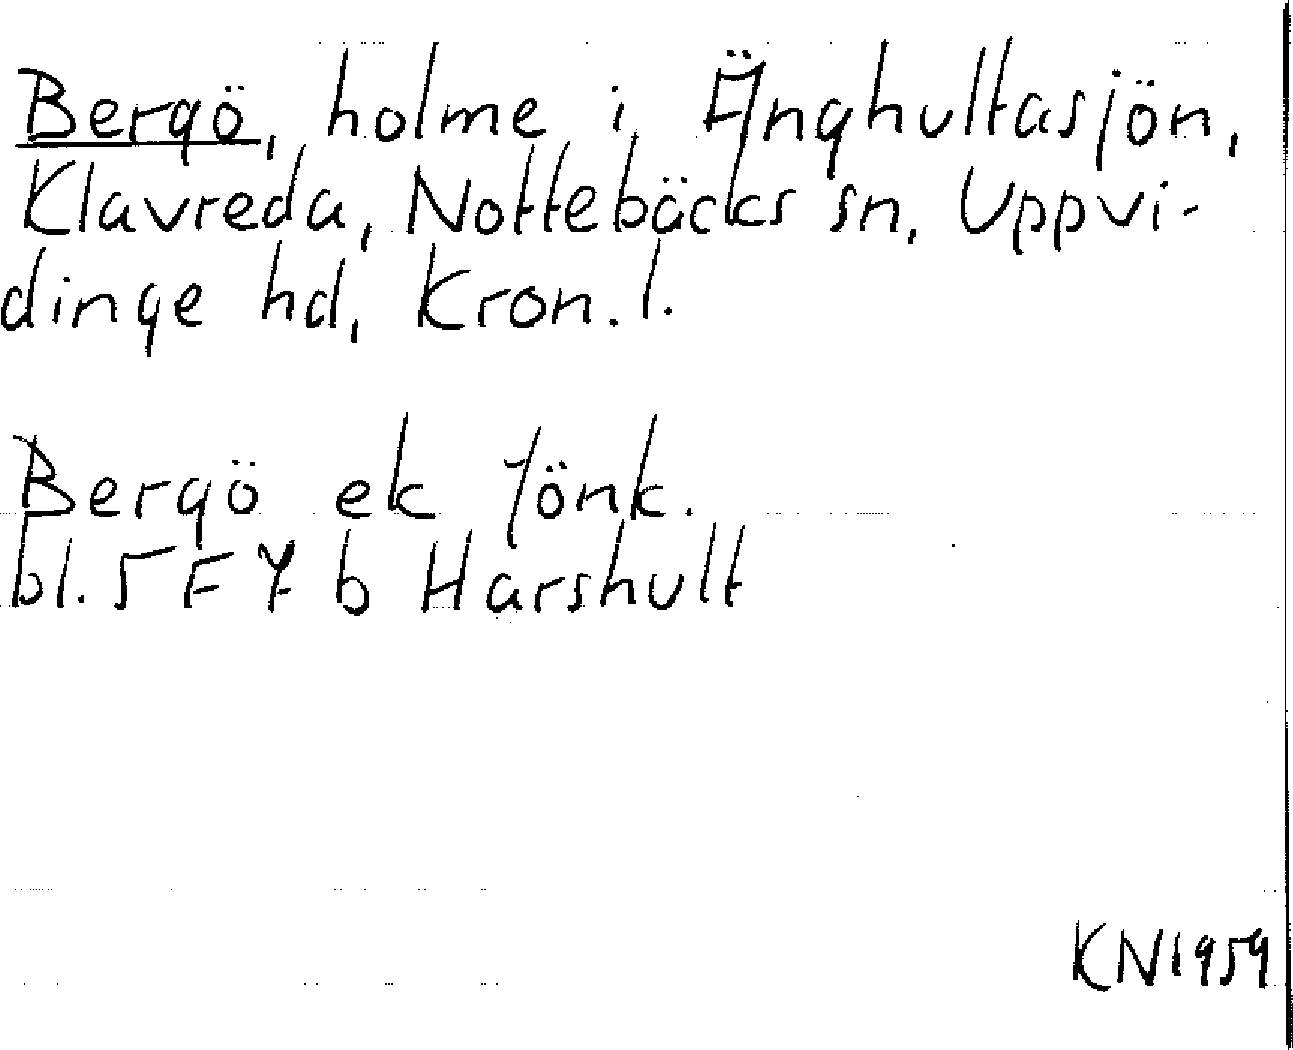 Bergö, holme i Änghultasjön,
Klavreda, Nottebäcks sn, Uppvi-
dinge hd, Kron. l.
Bergö ek Jönk.
bl. 5 F 7 b Harshult
KN1959